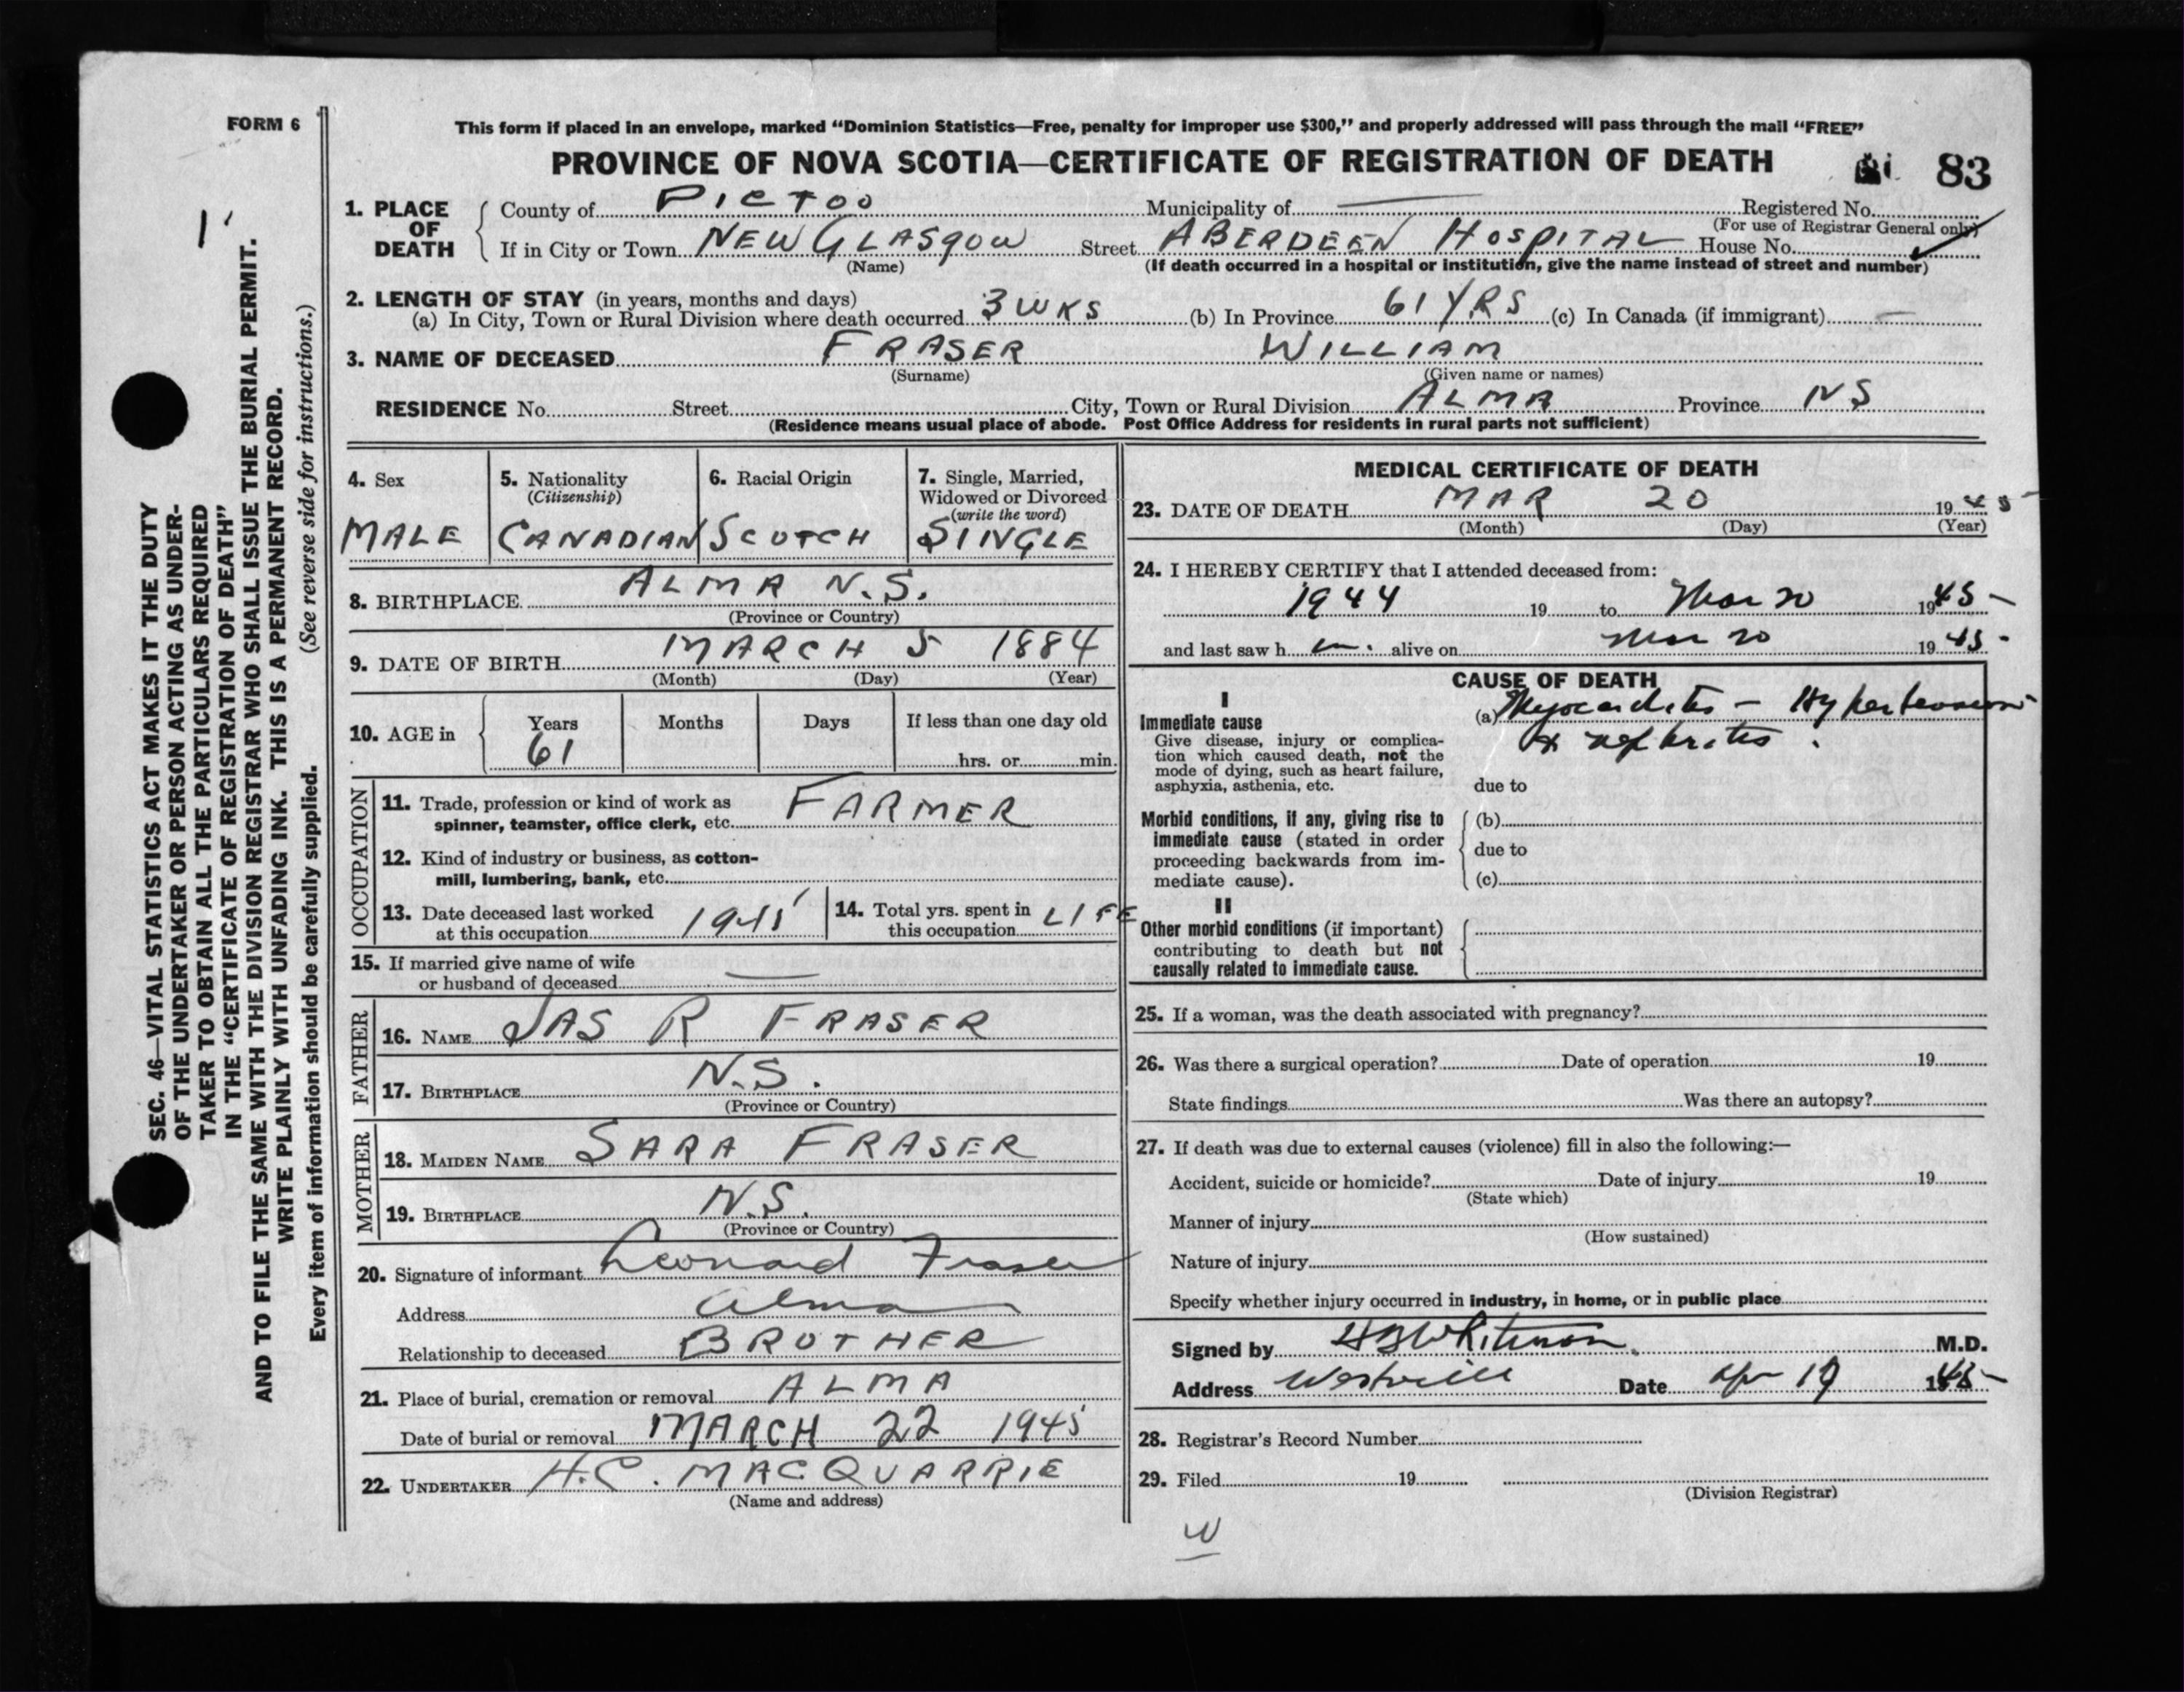 FORM 6
This form if placed in an envelope, marked “Dominion Statistics—Free, penalty for improper use $300,” and properly addressed will pass through the mail “FREE”
PROVINCE OF NOVA SCOTIA—CERTIFICATE OF REGISTRATION OF DEATH 83
1. PLACE OF DEATH
County of PICTOO Municipality of — Registered No.
(For use of Registrar General only)
If in City or Town NEW GLASGOW Street ABERDEEN HOSPITAL House No.
(Name) (If death occurred in a hospital or institution, give the name instead of street and number)
2. LENGTH OF STAY (in years, months and days)
(a) In City, Town or Rural Division where death occurred 3 WKS (b) In Province 61 YRS (c) In Canada (if immigrant) —
3. NAME OF DECEASED FRASER WILLIAM
(Surname) (Given name or names)
RESIDENCE No. Street City, Town or Rural Division ALMA Province NS
(Residence means usual place of abode. Post Office Address for residents in rural parts not sufficient)
4. Sex
MALE
5. Nationality
(Citizenship)
CANADIAN
6. Racial Origin
SCOTCH
7. Single, Married,
Widowed or Divorced
(write the word)
SINGLE
8. BIRTHPLACE ALMA N.S.
(Province or Country)
9. DATE OF BIRTH MARCH 5 1884
(Month) (Day) (Year)
10. AGE in
Years Months Days If less than one day old
61 hrs. or min.
OCCUPATION
11. Trade, profession or kind of work as
spinner, teamster, office clerk, etc. FARMER
12. Kind of industry or business, as cotton-
mill, lumbering, bank, etc.
13. Date deceased last worked
at this occupation 1945
14. Total yrs. spent in
this occupation LIFE
15. If married give name of wife
or husband of deceased —
FATHER
16. NAME JAS R FRASER
17. BIRTHPLACE N.S.
(Province or Country)
MOTHER
18. MAIDEN NAME SARA FRASER
19. BIRTHPLACE N.S.
(Province or Country)
20. Signature of informant Leonard Fraser
Address Alma
Relationship to deceased BROTHER
21. Place of burial, cremation or removal ALMA
Date of burial or removal MARCH 22 1945
22. UNDERTAKER H.C. MACQUARRIE
(Name and address)
MEDICAL CERTIFICATE OF DEATH
23. DATE OF DEATH MAR 20 1945
(Month) (Day) (Year)
24. I HEREBY CERTIFY that I attended deceased from:
1944 19 to Mar 20 1945
and last saw h im. alive on Mar 20 1945
CAUSE OF DEATH
I
Immediate cause
Give disease, injury or complica-
tion which caused death, not the
mode of dying, such as heart failure,
asphyxia, asthenia, etc.
(a) Myocarditis — Hypertension
& nephritis.
due to
Morbid conditions, if any, giving rise to
immediate cause (stated in order
proceeding backwards from im-
mediate cause).
(b)
due to
(c)
II
Other morbid conditions (if important)
contributing to death but not
causally related to immediate cause.
25. If a woman, was the death associated with pregnancy?
26. Was there a surgical operation? Date of operation 19
State findings Was there an autopsy?
27. If death was due to external causes (violence) fill in also the following:—
Accident, suicide or homicide? Date of injury 19
(State which)
Manner of injury
(How sustained)
Nature of injury
Specify whether injury occurred in industry, in home, or in public place
Signed by Whitman. M.D.
Address Westville Date Apr 19 1945
28. Registrar's Record Number
29. Filed 19
(Division Registrar)
W
SEC. 46—VITAL STATISTICS ACT MAKES IT THE DUTY
OF THE UNDERTAKER OR PERSON ACTING AS UNDER-
TAKER TO OBTAIN ALL THE PARTICULARS REQUIRED
IN THE “CERTIFICATE OF REGISTRATION OF DEATH”
AND TO FILE THE SAME WITH THE DIVISION REGISTRAR WHO SHALL ISSUE THE BURIAL PERMIT.
WRITE PLAINLY WITH UNFADING INK. THIS IS A PERMANENT RECORD.
Every item of information should be carefully supplied. (See reverse side for instructions.)